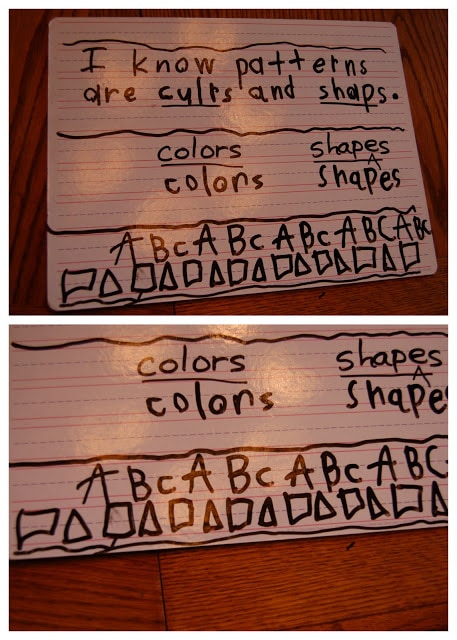 I know patterns
are culrs and shaps.
colors shapes
colors shapes
ABcABcABcABCABC
colors shapes
colors shape
ABcABcABcABC